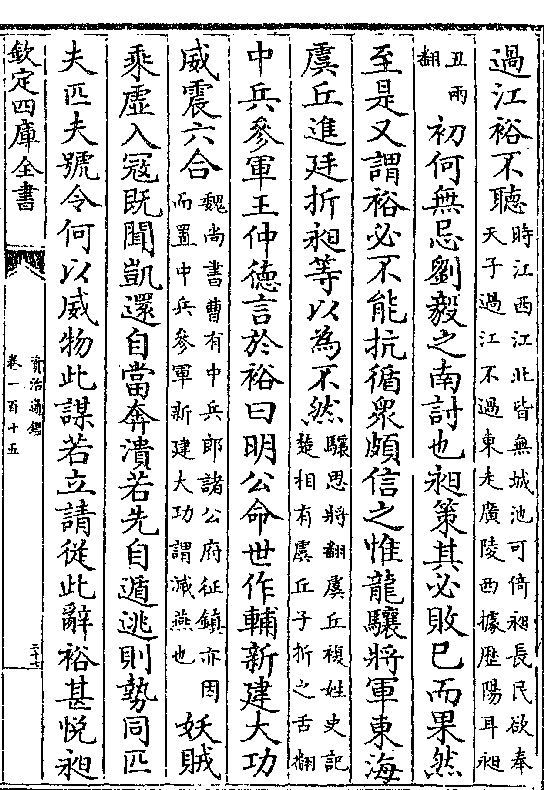 過江裕不聽時江西江北皆無城池可倚昶長民欲奉
天子過江不過東走廣陵西據歷陽耳昶
丑兩
翻初何無忌劉毅之南討也昶策其必敗已而果然
至是又謂裕必不能抗循衆頗信之惟龍驤將軍東海
虞丘進廷折昶等以為不然驤思將翻虞丘複姓史記
楚相有虞丘子折之舌翻
中兵參軍王仲德言於裕曰明公命世作輔新建大功
威震六合魏尚書曹有中兵郎諸公府征鎮亦因
而置中兵參軍新建大功謂滅燕也妖賊
乘虛入冦既聞凱還自當奔潰若先自遁逃則勢同匹
夫匹夫號令何以威物此謀若立請從此辭裕甚悅昶
欽定四庫全書
資治通鑑
卷一百十五
三十七